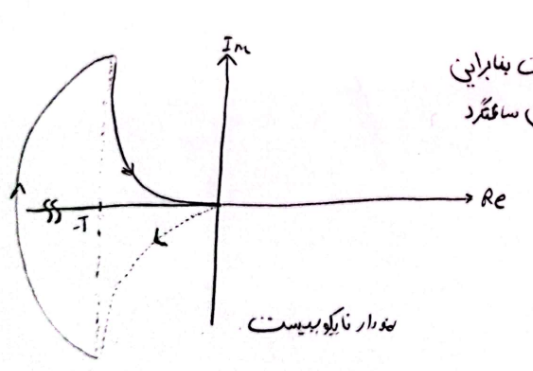 Im
ت بنابراین
ساعتگرد
Re
-T
نمودار نایکوییست